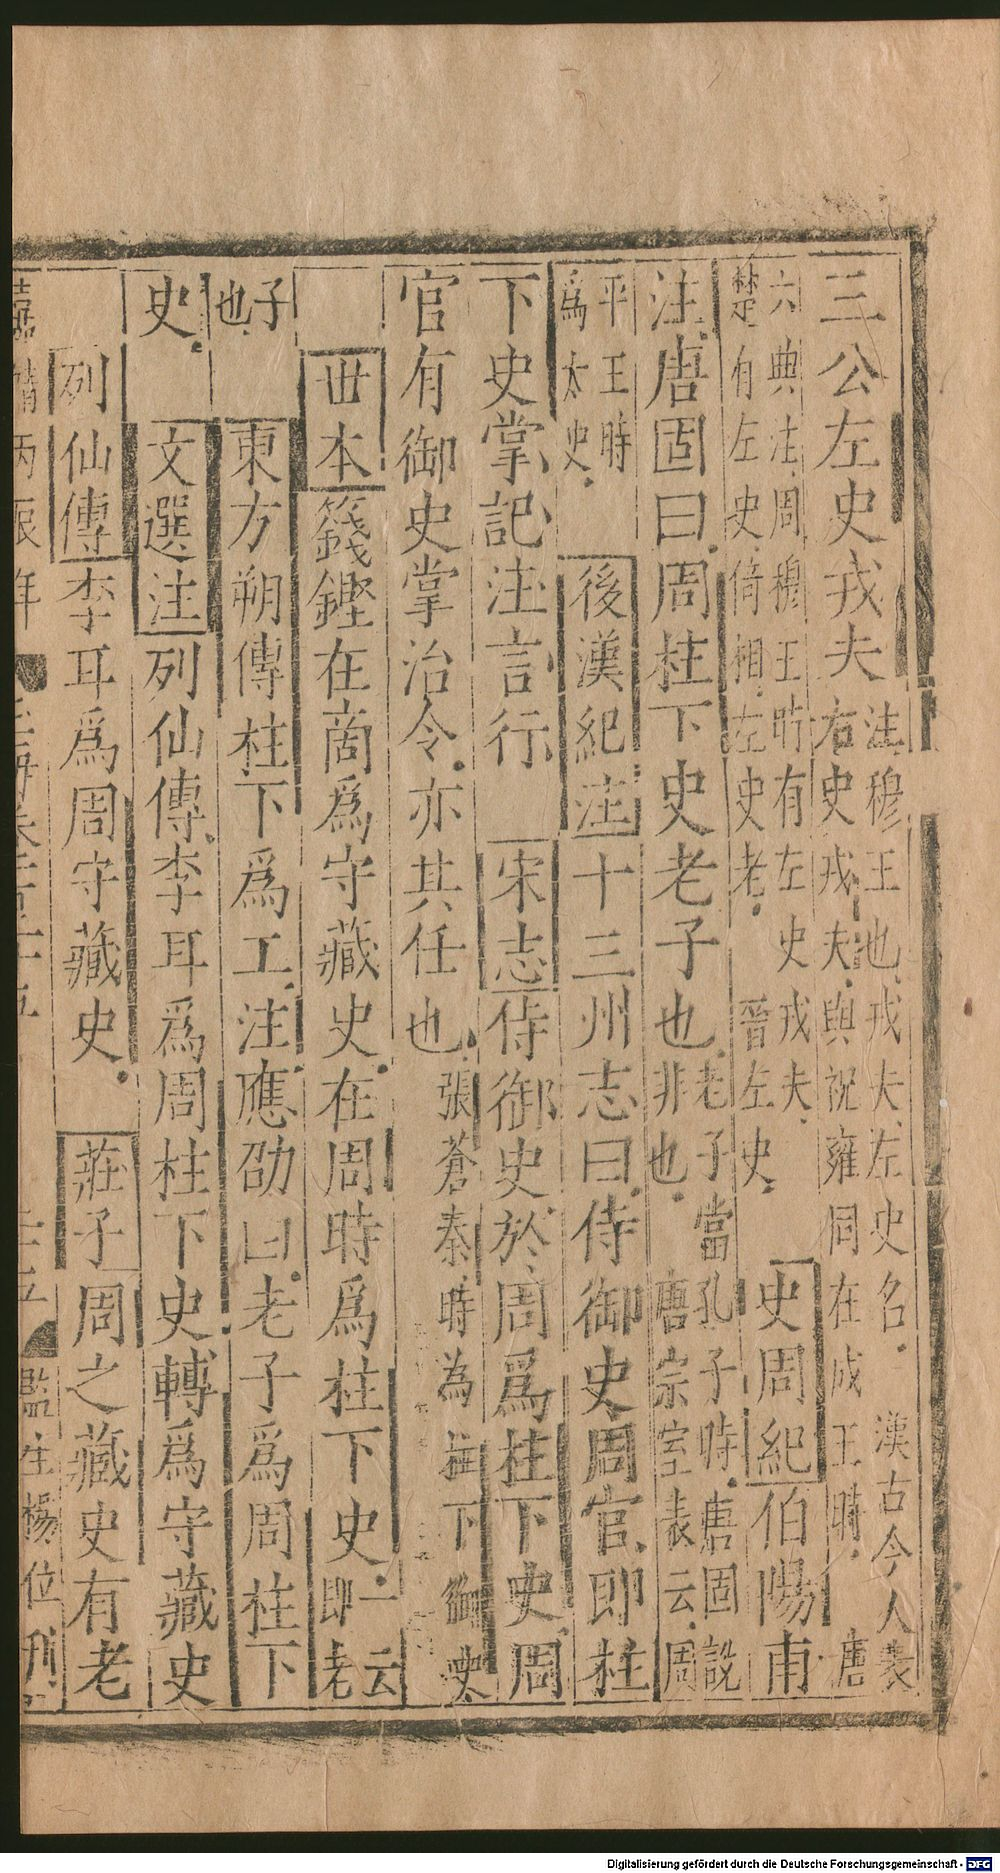 三公左史戎夫注穆王也戎夫左史名漢古今人表
右史戎夫與祝雍同在成王時唐
六典注周穆王時有左史戎夫
楚有左史倚相左史老晉左史史周紀伯陽甫
注唐固曰周柱下史老子也老子當孔子時唐固說
非也唐宗室表云周
平王時
爲太史後漢紀注十三州志曰侍御史周官即柱
下史掌記注言行宋志侍御史於周爲柱下史周
官有御史掌治令亦其任也張蒼秦時為柱下御史
世本籛鏗在商爲守藏史在周時爲柱下史一云
即老
子
也東方朔傳柱下爲工注應劭曰老子爲周柱下
史文選注列仙傳李耳爲周柱下史轉爲守藏史
列仙傳李耳爲周守藏史莊子周之藏史有老
嘉靖丙辰年
監生楊位刊
Digitalisierung gefördert durch die Deutsche Forschungsgemeinschaft - DFG